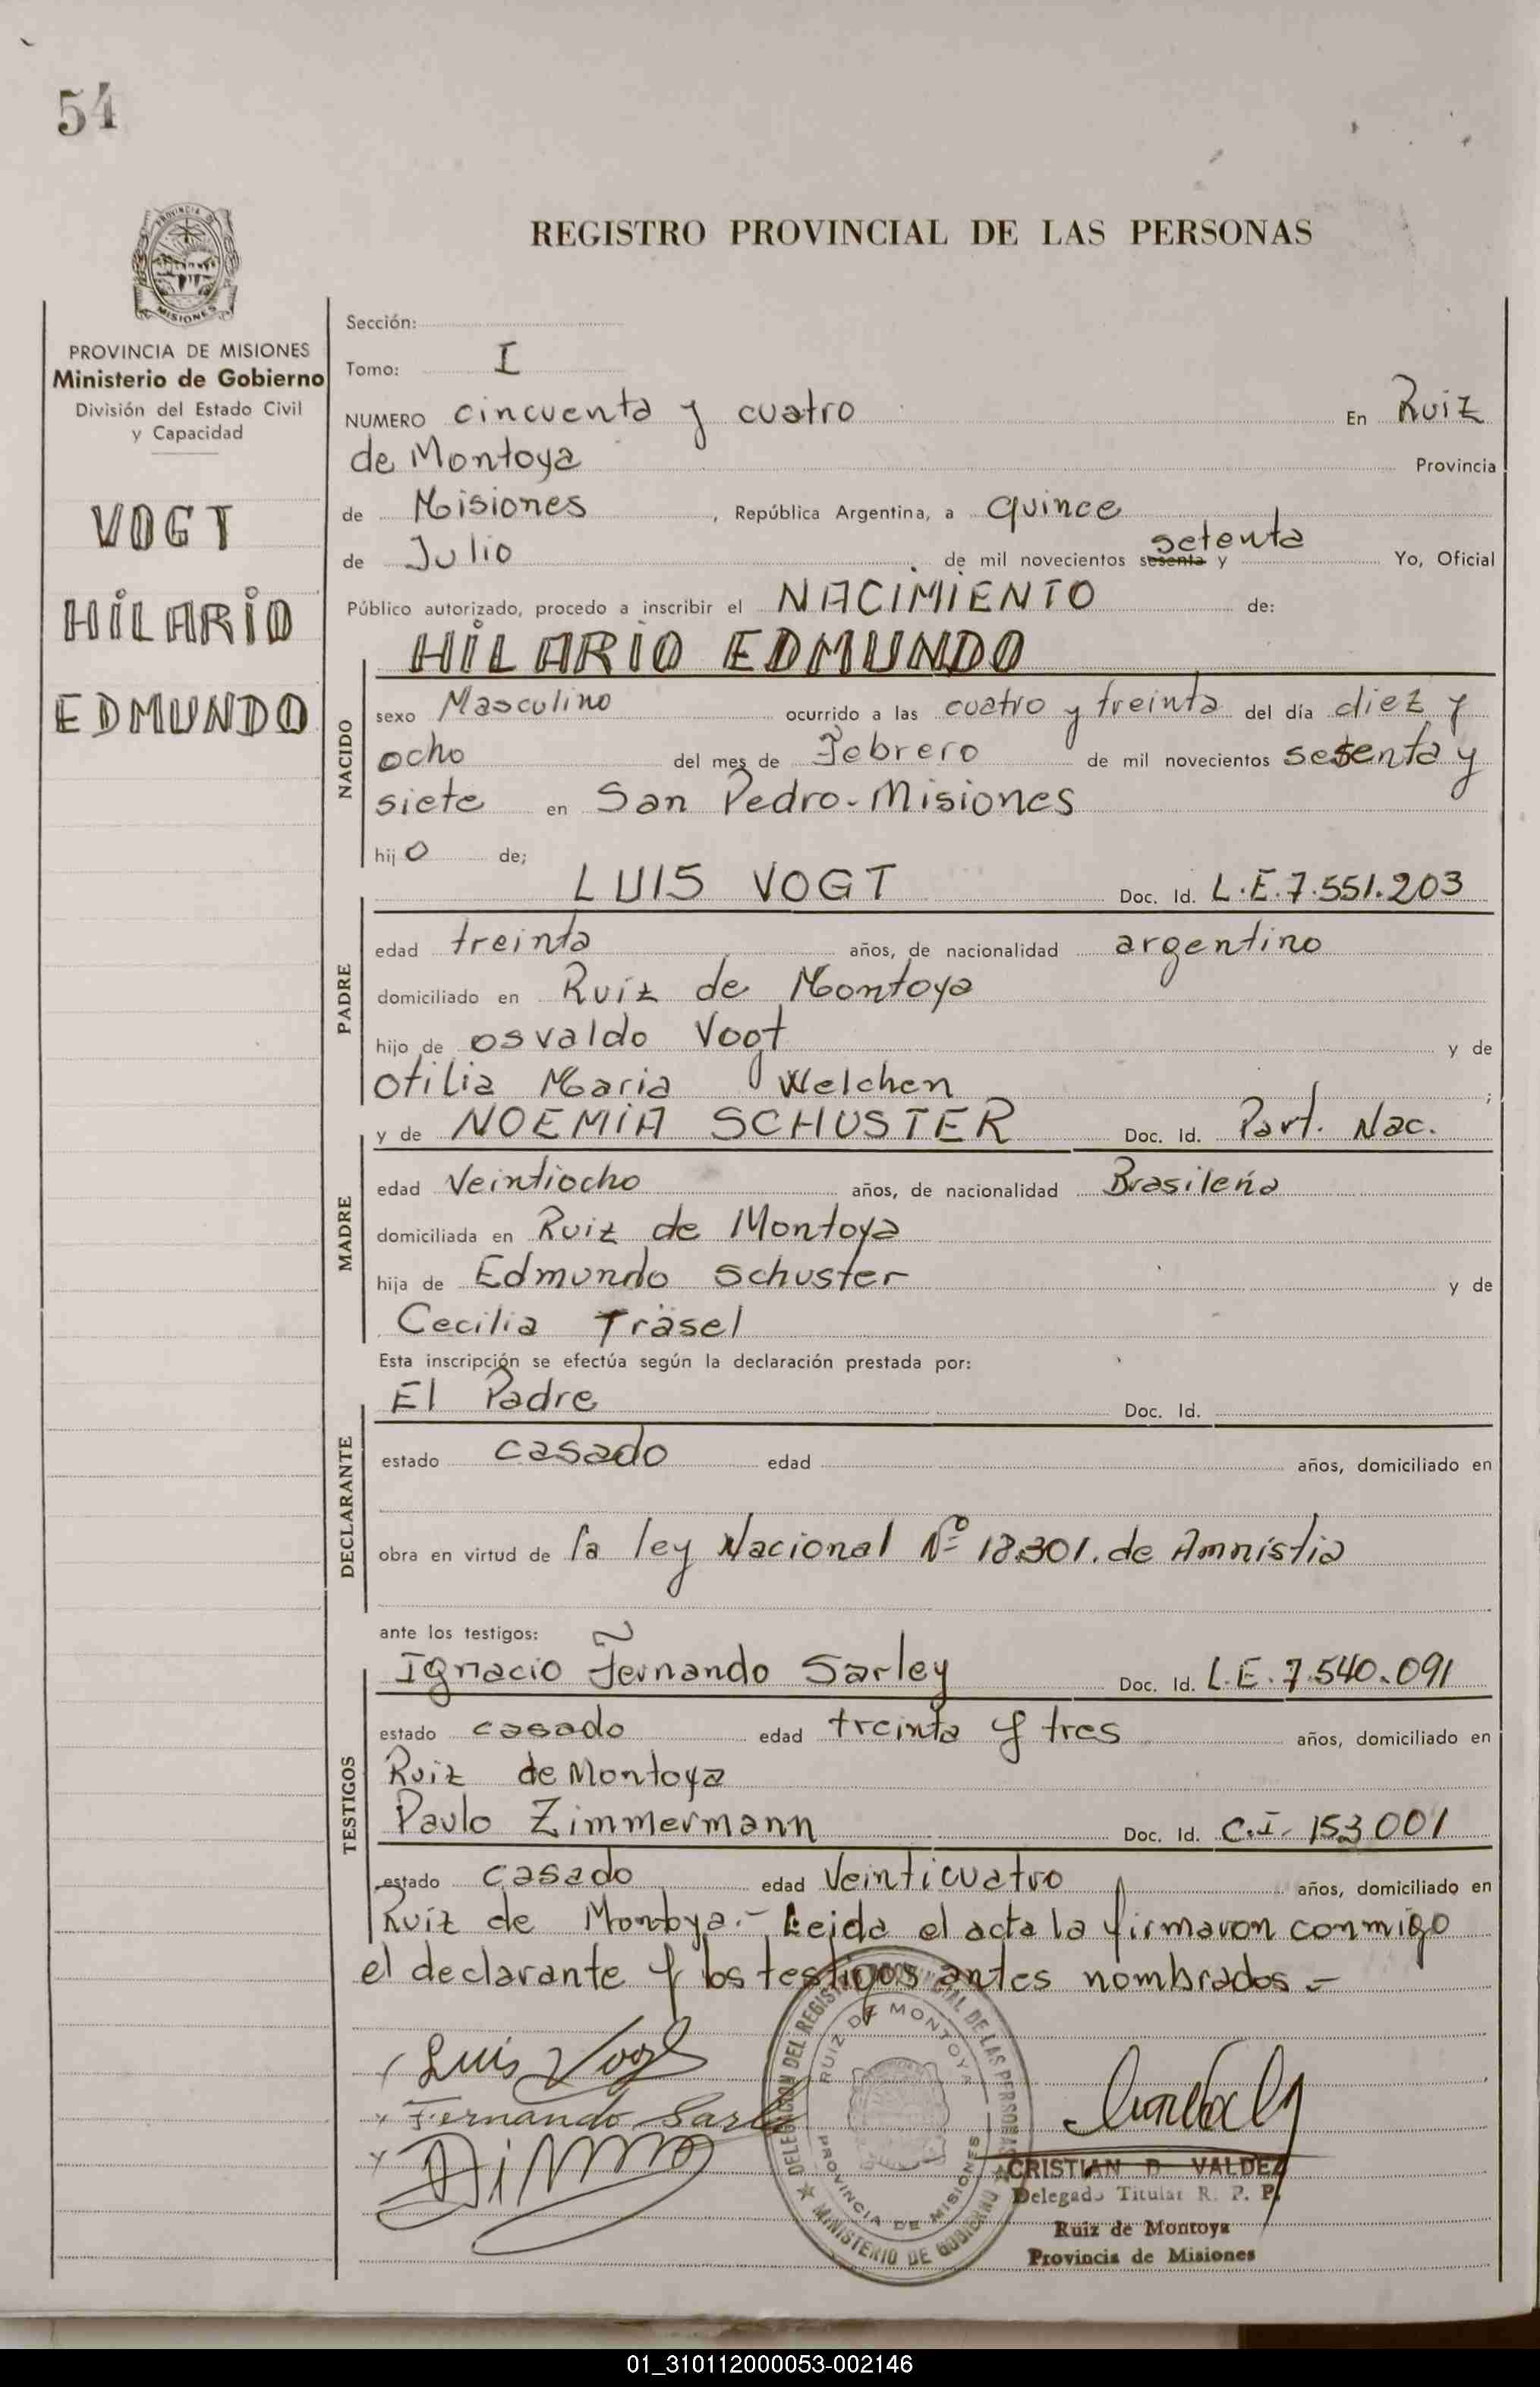 54
REGISTRO PROVINCIAL DE LAS PERSONAS
MISIONES
PROVINCIA DE MISIONES
Ministerio de Gobierno
División del Estado Civil
y Capacidad
VOGT
HILARIO
EDMUNDO
Sección:
Tomo: I
NUMERO cincuenta y cuatro En Ruiz
de Montoya Provincia
de Misiones, República Argentina, a quince
de Julio de mil novecientos sesenta y setenta Yo, Oficial
Público autorizado, procedo a inscribir el NACIMIENTO de:
HILARIO EDMUNDO
NACIDO
sexo Masculino ocurrido a las cuatro y treinta del día diez y
ocho del mes de Febrero de mil novecientos sesenta y
siete en San Pedro-Misiones
hijo de;
LUIS VOGT Doc. Id. L.E.7.551.203
PADRE
edad treinta años, de nacionalidad argentino
domiciliado en Ruiz de Montoya
hijo de Osvaldo Vogt y de
Otilia Maria Welchen ;
y de NOEMIA SCHUSTER Doc. Id. Part. Nac.
MADRE
edad Veintiocho años, de nacionalidad Brasileña
domiciliada en Ruiz de Montoya
hija de Edmundo Schuster y de
Cecilia Träsel
Esta inscripción se efectúa según la declaración prestada por:
El Padre Doc. Id.
DECLARANTE
estado casado edad años, domiciliado en
obra en virtud de la ley Nacional Nº 18.301. de Amnistia
ante los testigos:
Ignacio Fernando Sarley Doc. Id. L.E.7.540.091
TESTIGOS
estado casado edad treinta y tres años, domiciliado en
Ruiz de Montoya
Paulo Zimmermann Doc. Id. C.I. 153001
estado casado edad Veinticuatro años, domiciliado en
Ruiz de Montoya.- Leida el acta la firmaron conmigo
el declarante y los testigos antes nombrados.-
Luis Vogt
Fernando Sarley
DELEGACION DEL REGISTRO PROVINCIAL DE LAS PERSONAS
RUIZ DE MONTOYA
PROVINCIA DE MISIONES
MINISTERIO DE GOBIERNO
CRISTIAN D. VALDEZ
Delegado Titular R. P. P.
Ruiz de Montoya
Provincia de Misiones
01_310112000053-002146